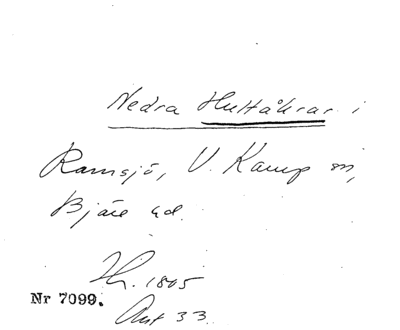 Nedra Hultåkrar i
Ramsjö, V. Karup sn,
Bjäre hd.
Hr. 1805
Nr 7099.
Akt 33